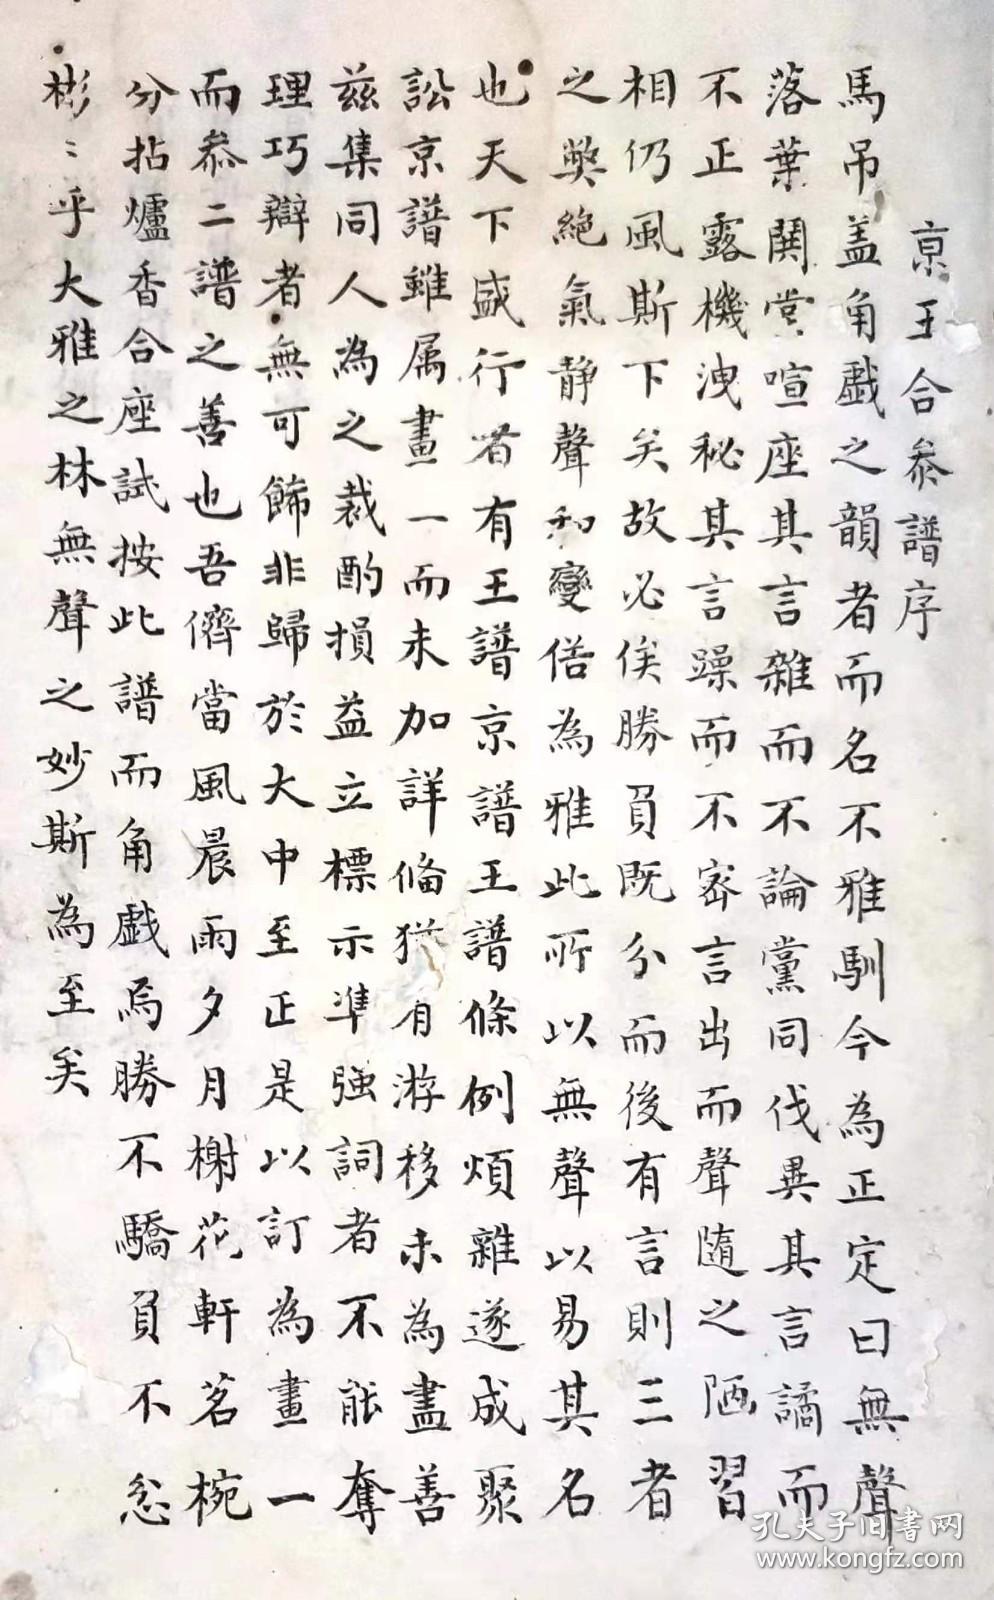 京王合叅譜序
馬吊盖角戲之韻者而名不雅馴今為正定曰無聲
落葉鬭嘗喧座其言雜而不論黨同伐異其言譎而
不正露機洩秘其言躁而不密言出而聲隨之陋習
相仍風斯下矣故必俟勝負既分而後有言則三者
之獘絶氣静聲和變俗為雅此所以無聲以易其名
也天下盛行者有王譜京譜王譜條例煩雜遂成聚
訟京譜雖属畫一而未加詳備猶有游移未為盡善
兹集同人為之裁酌損益立標示凖强詞者不能奪
理巧辯者無可飾非歸於大中至正是以訂為畫一
而叅二譜之善也吾儕當風晨雨夕月榭花軒茗椀
分拈爐香合座試按此譜而角戲焉勝不驕負不忿
彬〻乎大雅之林無聲之妙斯為至矣
孔夫子旧書网
www.kongfz.com